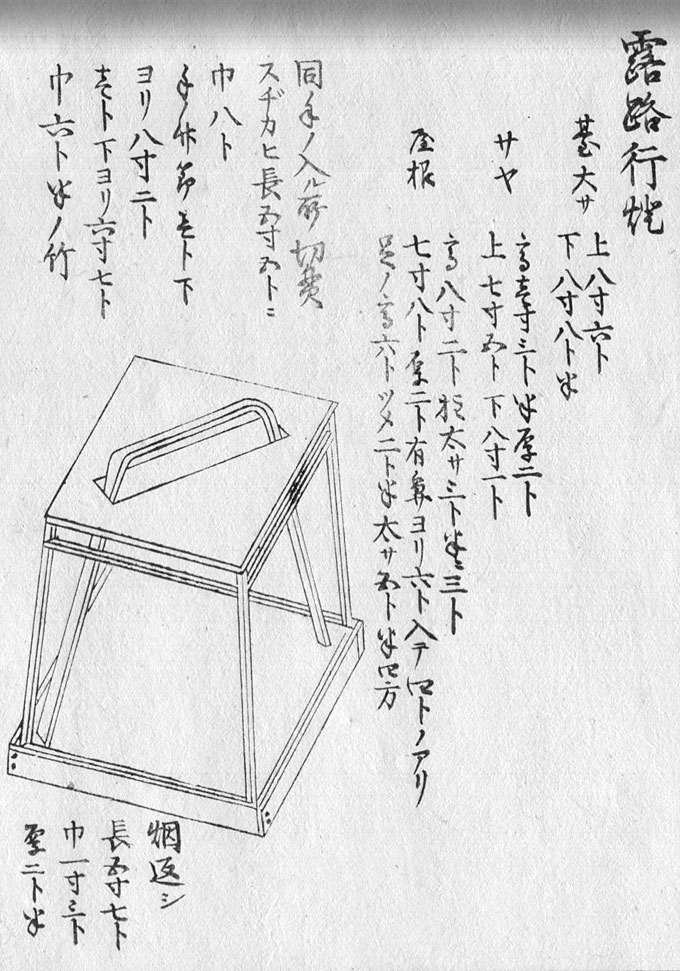 露路行燈
臺大サ
上八寸六ト
下八寸八ト半
高壱寸三ト半厚二ト
サヤ
上七寸五ト下八寸一ト
高八寸二ト柱太サ三ト半ニ三ト
屋根
七寸八ト厚二ト有鼻ヨリ六ト入テ四トノアリ
足ノ高六トツメ二ト半太サ五ト半四方
同手ノ入ル所切貫
スヂカヒ長五寸五トニ
巾八ト
手ノ竹節壱ト下
ヨリ八寸二ト
壱ト下ヨリ六寸七ト
巾六ト半ノ竹
烟返シ
長五寸七ト
巾一寸三ト
厚二ト半